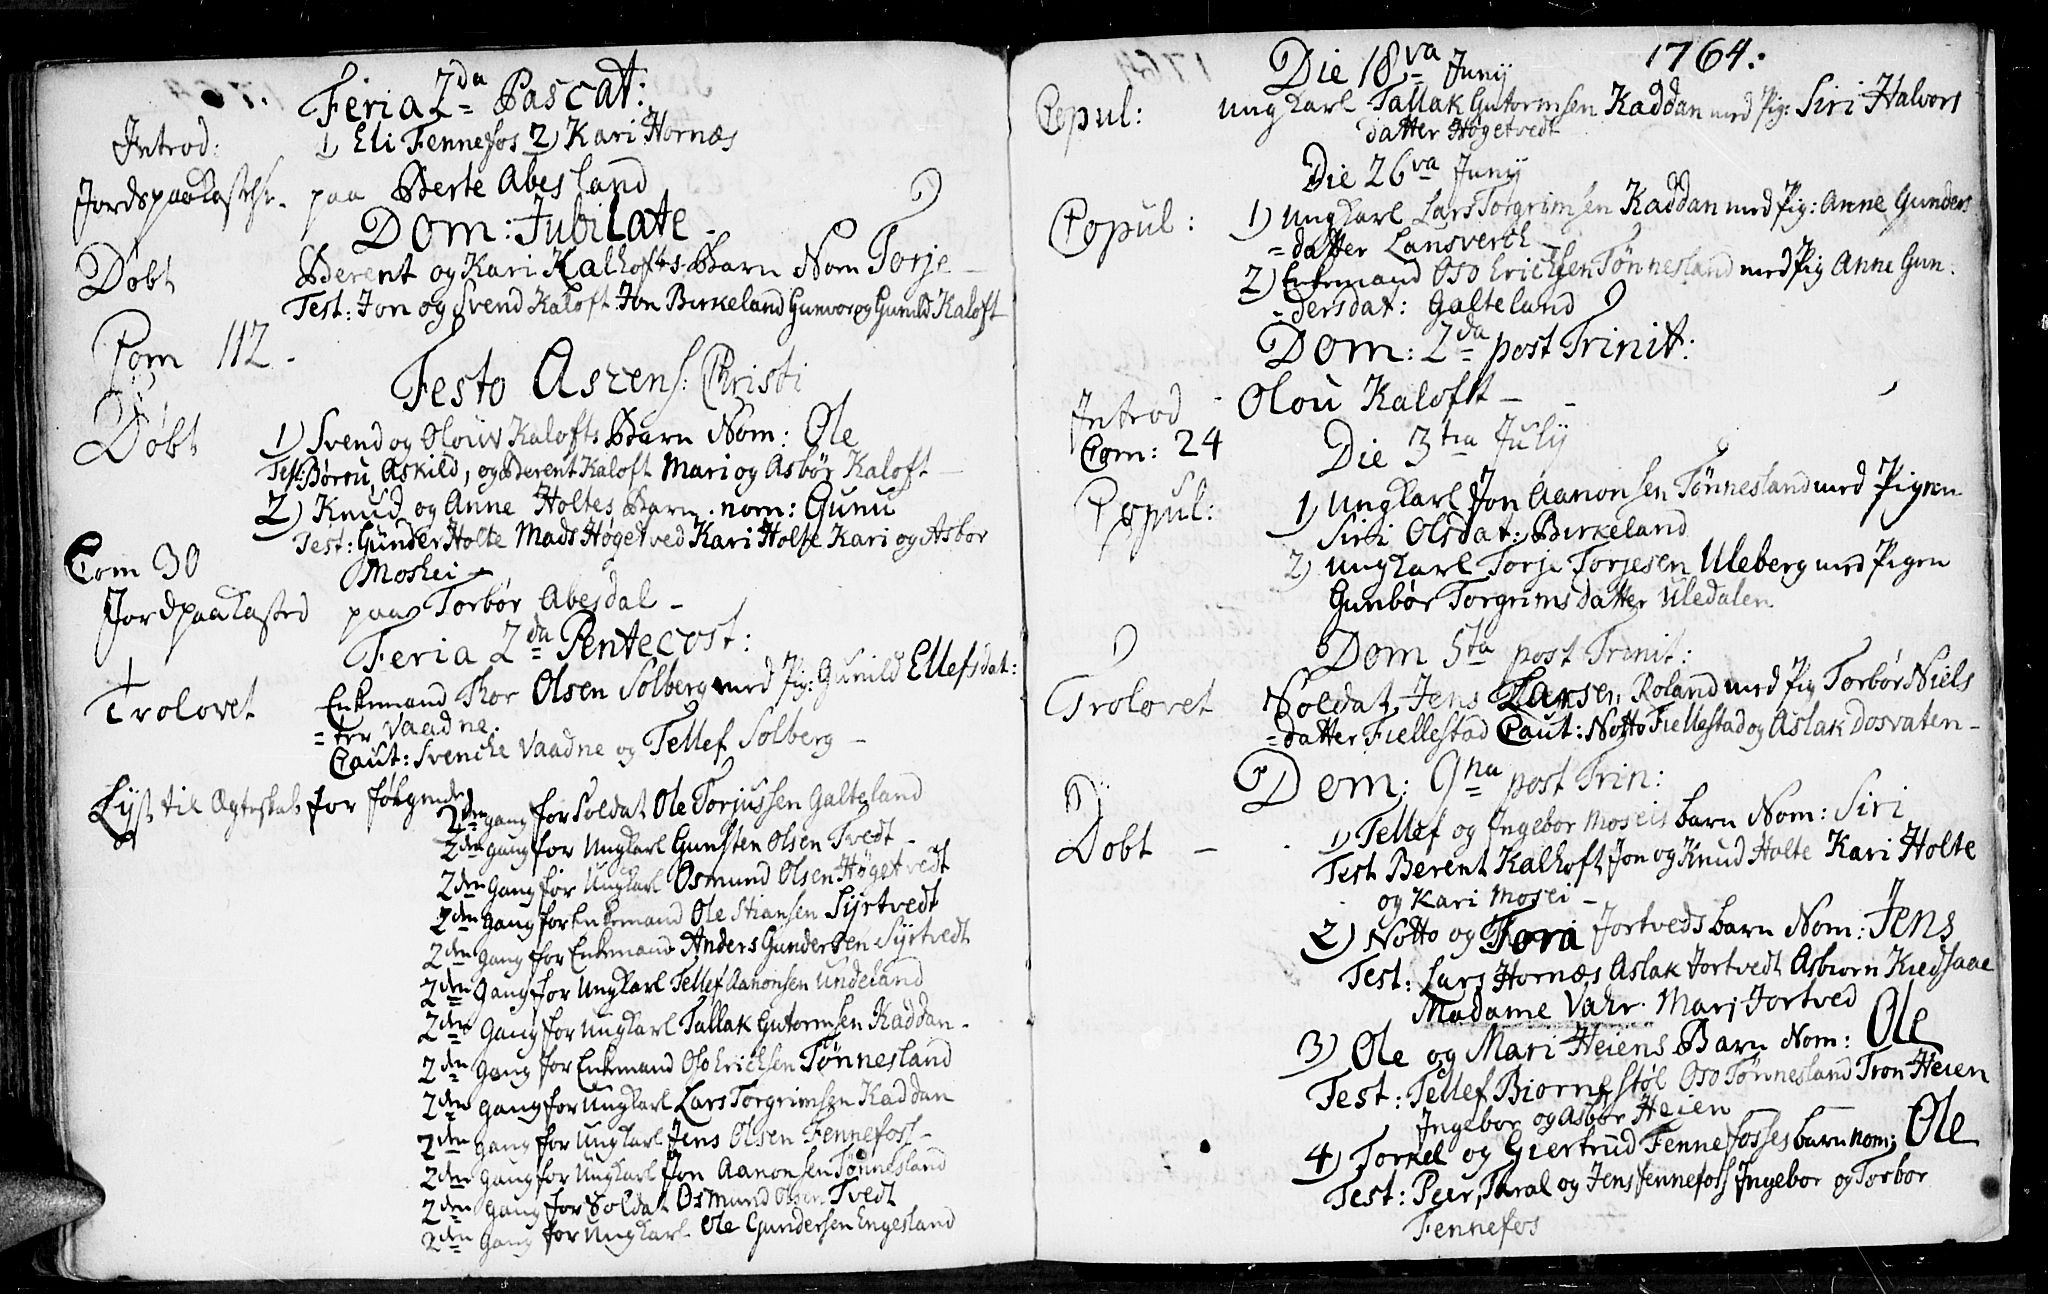 Feria 2da Pascat:
Introd: 1) Eli Fennefos 2) Kari Hornæs
Jordspaakastelse. paa Berte Abesland
Dom: Jubilate.
Døbt Berent og Kari Kalhofts Barn Nom Torje
Test: Jon og Svend Kaloft Jon Birkeland Gunvor og Gunild Kaloft
Com 112.
Festo Ascens: Christi
Døbt 1) Svend og Olouv Kalofts Barn Nom: Ole
Test: Børou, Askild, og Berent Kaloft Mari og Asbør Kaloft
2) Knud og Anne Holtes Barn nom: Gunu
Test: Gunder Holte Mads Høgetved Kari Holte Kari og Asbor
Moshei
Com 30
Jordpaakasted paa Torbør Abesdal
Feria 2da Pentecost:
Trolovet Enkemand Thor Olsen Solberg med Pig: Gunild Ellefsdat:
=ter Vaadne.
Caut: Svenche Vaadne og Tellef Solberg
Lyst til Ægteskab for følgende
2den gang for Soldat Ole Torjussen Galteland
2den gang for Ungkarl Gunsten Olsen Tvedt
2den Gang for Ungkarl Osmund Olsen Høgetvedt
2den Gang for Enkemand Ole Stiansen Syrtvedt
2den Gang for Enkemand Anders Gundersen Syrtvedt
2den Gang for Ungkarl Tellef Aanonsen Undeland
2den Gang for Ungkarl Tallak Gutormsen Kaddan.
2den Gang for Enkemand Oso Erichsen Tønnesland
2den gang for Ungkarl Lars Torgrimsen Kaddan
2den gang for Ungkarl Jens Olsen Fennefoss
2den gang for Ungkarl Jon Aanonsen Tønnesland
2den gang for Soldat Osmund Olsen Tvedt
2den gang for Ungkarl Ole Gundersen Engesland
1764:
Die 18va Junij
Copul: Ungkarl Tallak Gutormsen Kaddan med Pig: Siri Halvors
datter Høgetvedt
Die 26va Junij
Copul: 1) Ungkarl Lars Torgrimsen Kaddan med Pig: Anne Gunders
=datter Lansverck
2) Enkemand Oso Erichsen Tønnesland med Pig Anne Gun:
-dersdat: Galteland
Dom: 2da post Trinit:
Introd Olou Kaloft
Com: 24
Die 3tia July
Copul: 1) Ungkarl Jon Aanonsen Tønnesland med Pigen
Siri Olsdat: Birkeland
2) Ungkarl Torje Torjesen Uleberg med Pigen
Gunbør Torgrimsdatter Uledalen
Dom 5ta post Trinit:
Trolovet Soldat Jens Larsen Roland med Pig Torbør Niels
=datter Fiellestad Caut: Notto Fiellestad og Aslak Dosvaten
Dom: 9na post Trin:
Døbt 1) Tellef og Ingebor Moseis barn Nom: Siri
Test Berent Kalhoft Jon og Knud Holte Kari Holte
og Kari Mosei
2) Notto og Tora Jortveds barn Nom: Jens
Test: Lars Hornæs Aslak Jortvedt Asbiorn Kiedsaae
Madame Vahr. Marj Jortved
3) Ole og Mari Heiens Barn Nom: Ole
Test: Tellef Biornestøl Oso Tønnesland Tron Heien
Ingebor og Asbør Heien
4) Torkel og Giertrud Fennefosses barn nom: Ole
Test: Peer, Taral og Jens Fennefoss Ingebor og Torbor
Fennefos